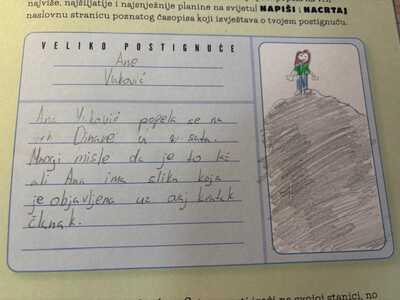 najviše, najšiljatije i najsnježnije planine na svijetu! NAPIŠI I NACRTAJ
naslovnu stranicu poznatog časopisa koji izvještava o tvojem postignuću.
VELIKO POSTIGNUĆE
Ane
Vuković
Ana Vuković popela se na
vrh Dinare u 2 sata.
Mnogi misle da je to laž
ali Ana ima sliku koja
je objavljena uz ovaj kratak
članak.
na svojoj stanici, no